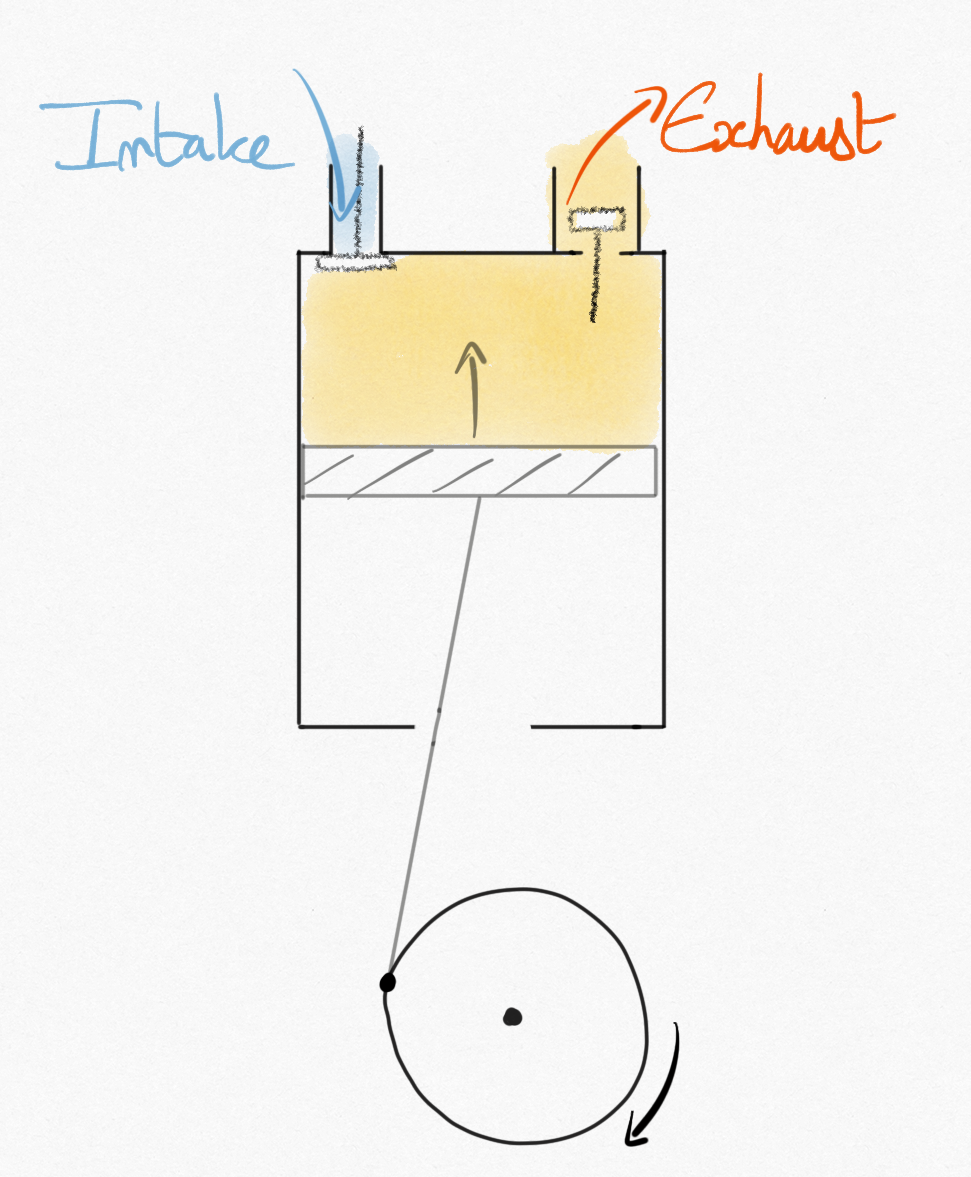 Intake
Exhaust